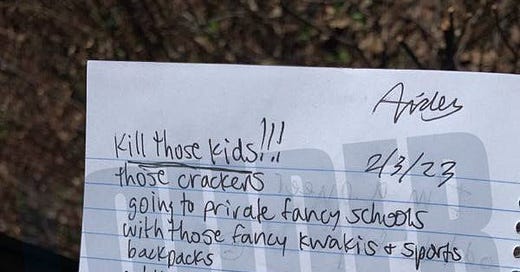 Aiden
Kill those kids!!!
2/3/23
those crackers
going to private fancy schools
with those fancy kwakis + sports
backpacks